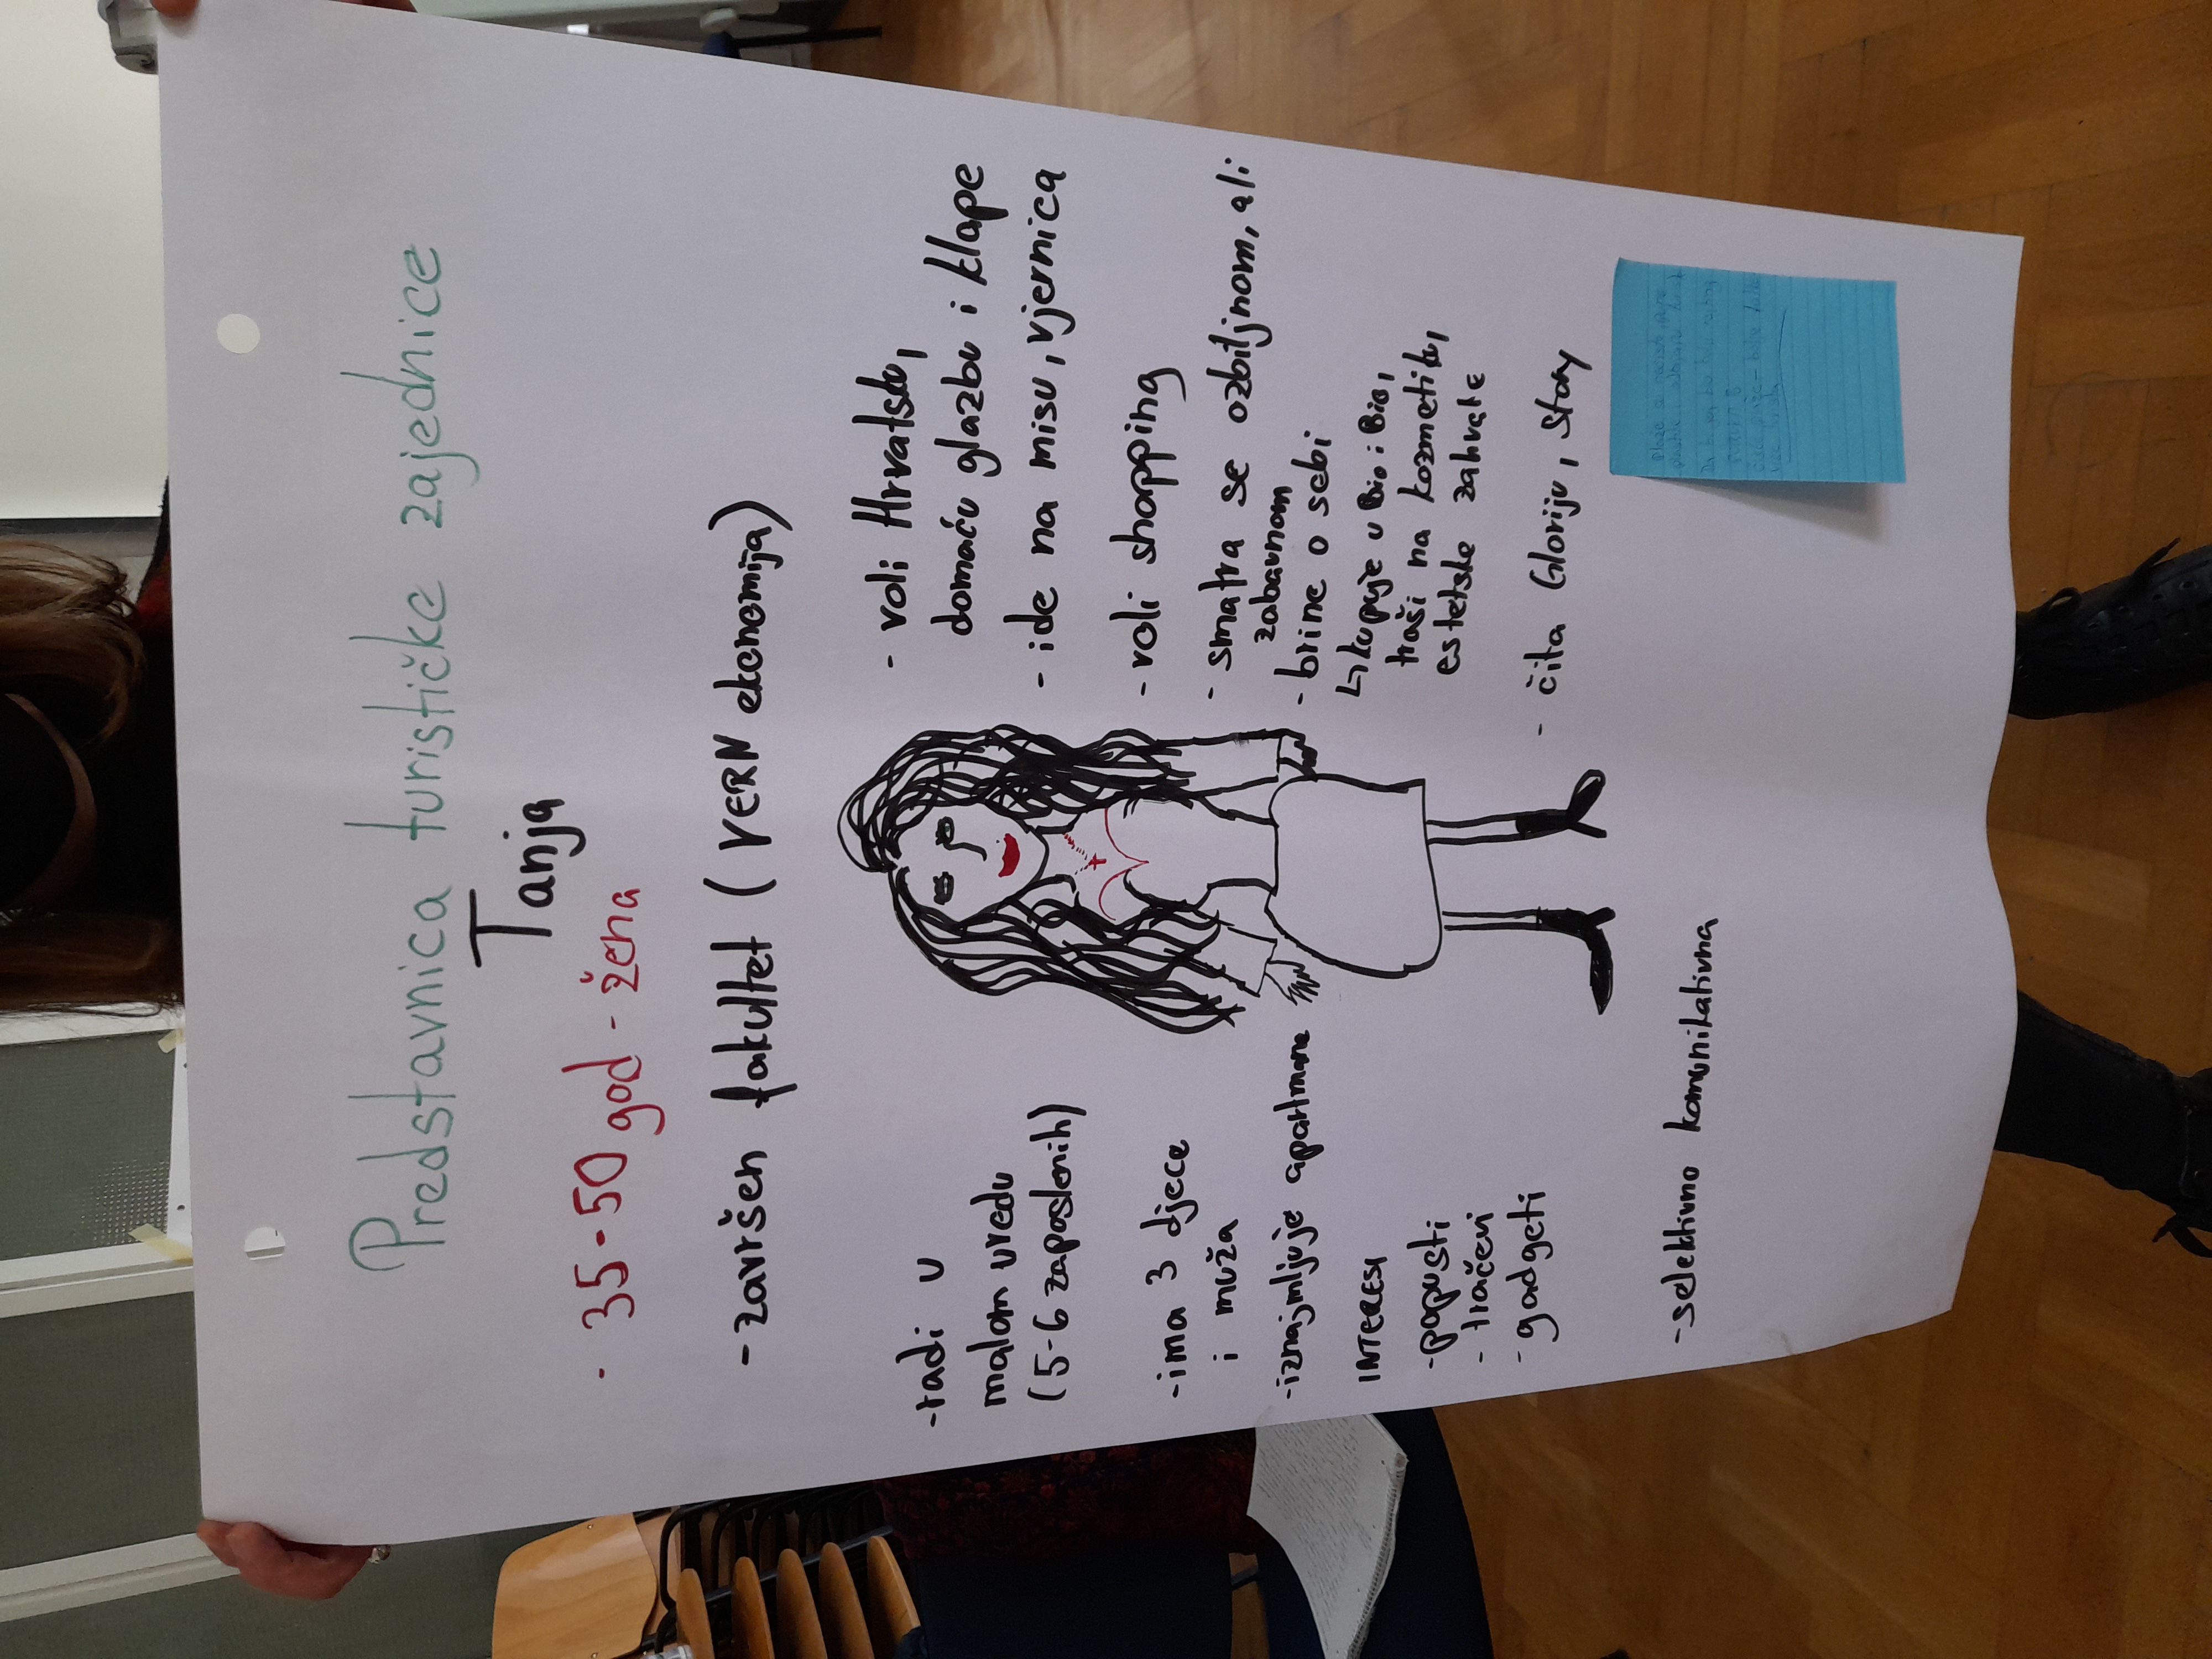 Predstavnica turističke zajednice
Tanja
- 35-50 god - žena
- završen fakultet (VERN ekonomija)
- radi u
malom uredu
(5-6 zaposlenih)
- ima 3 djece
i muža
- iznajmljuje apartmane
INTERESI
- popusti
- tračevi
- gadgeti
- selektivno komunikativna
- voli Hrvatsku,
domaću glazbu i klape
- ide na misu, vjernica
- voli shopping
- smatra se ozbiljnom, ali
zabavnom
- brine o sebi
↳ kupuje u Bio i Bio,
troši na kozmetiku,
estetske zahvate
- čita Gloriju, Story